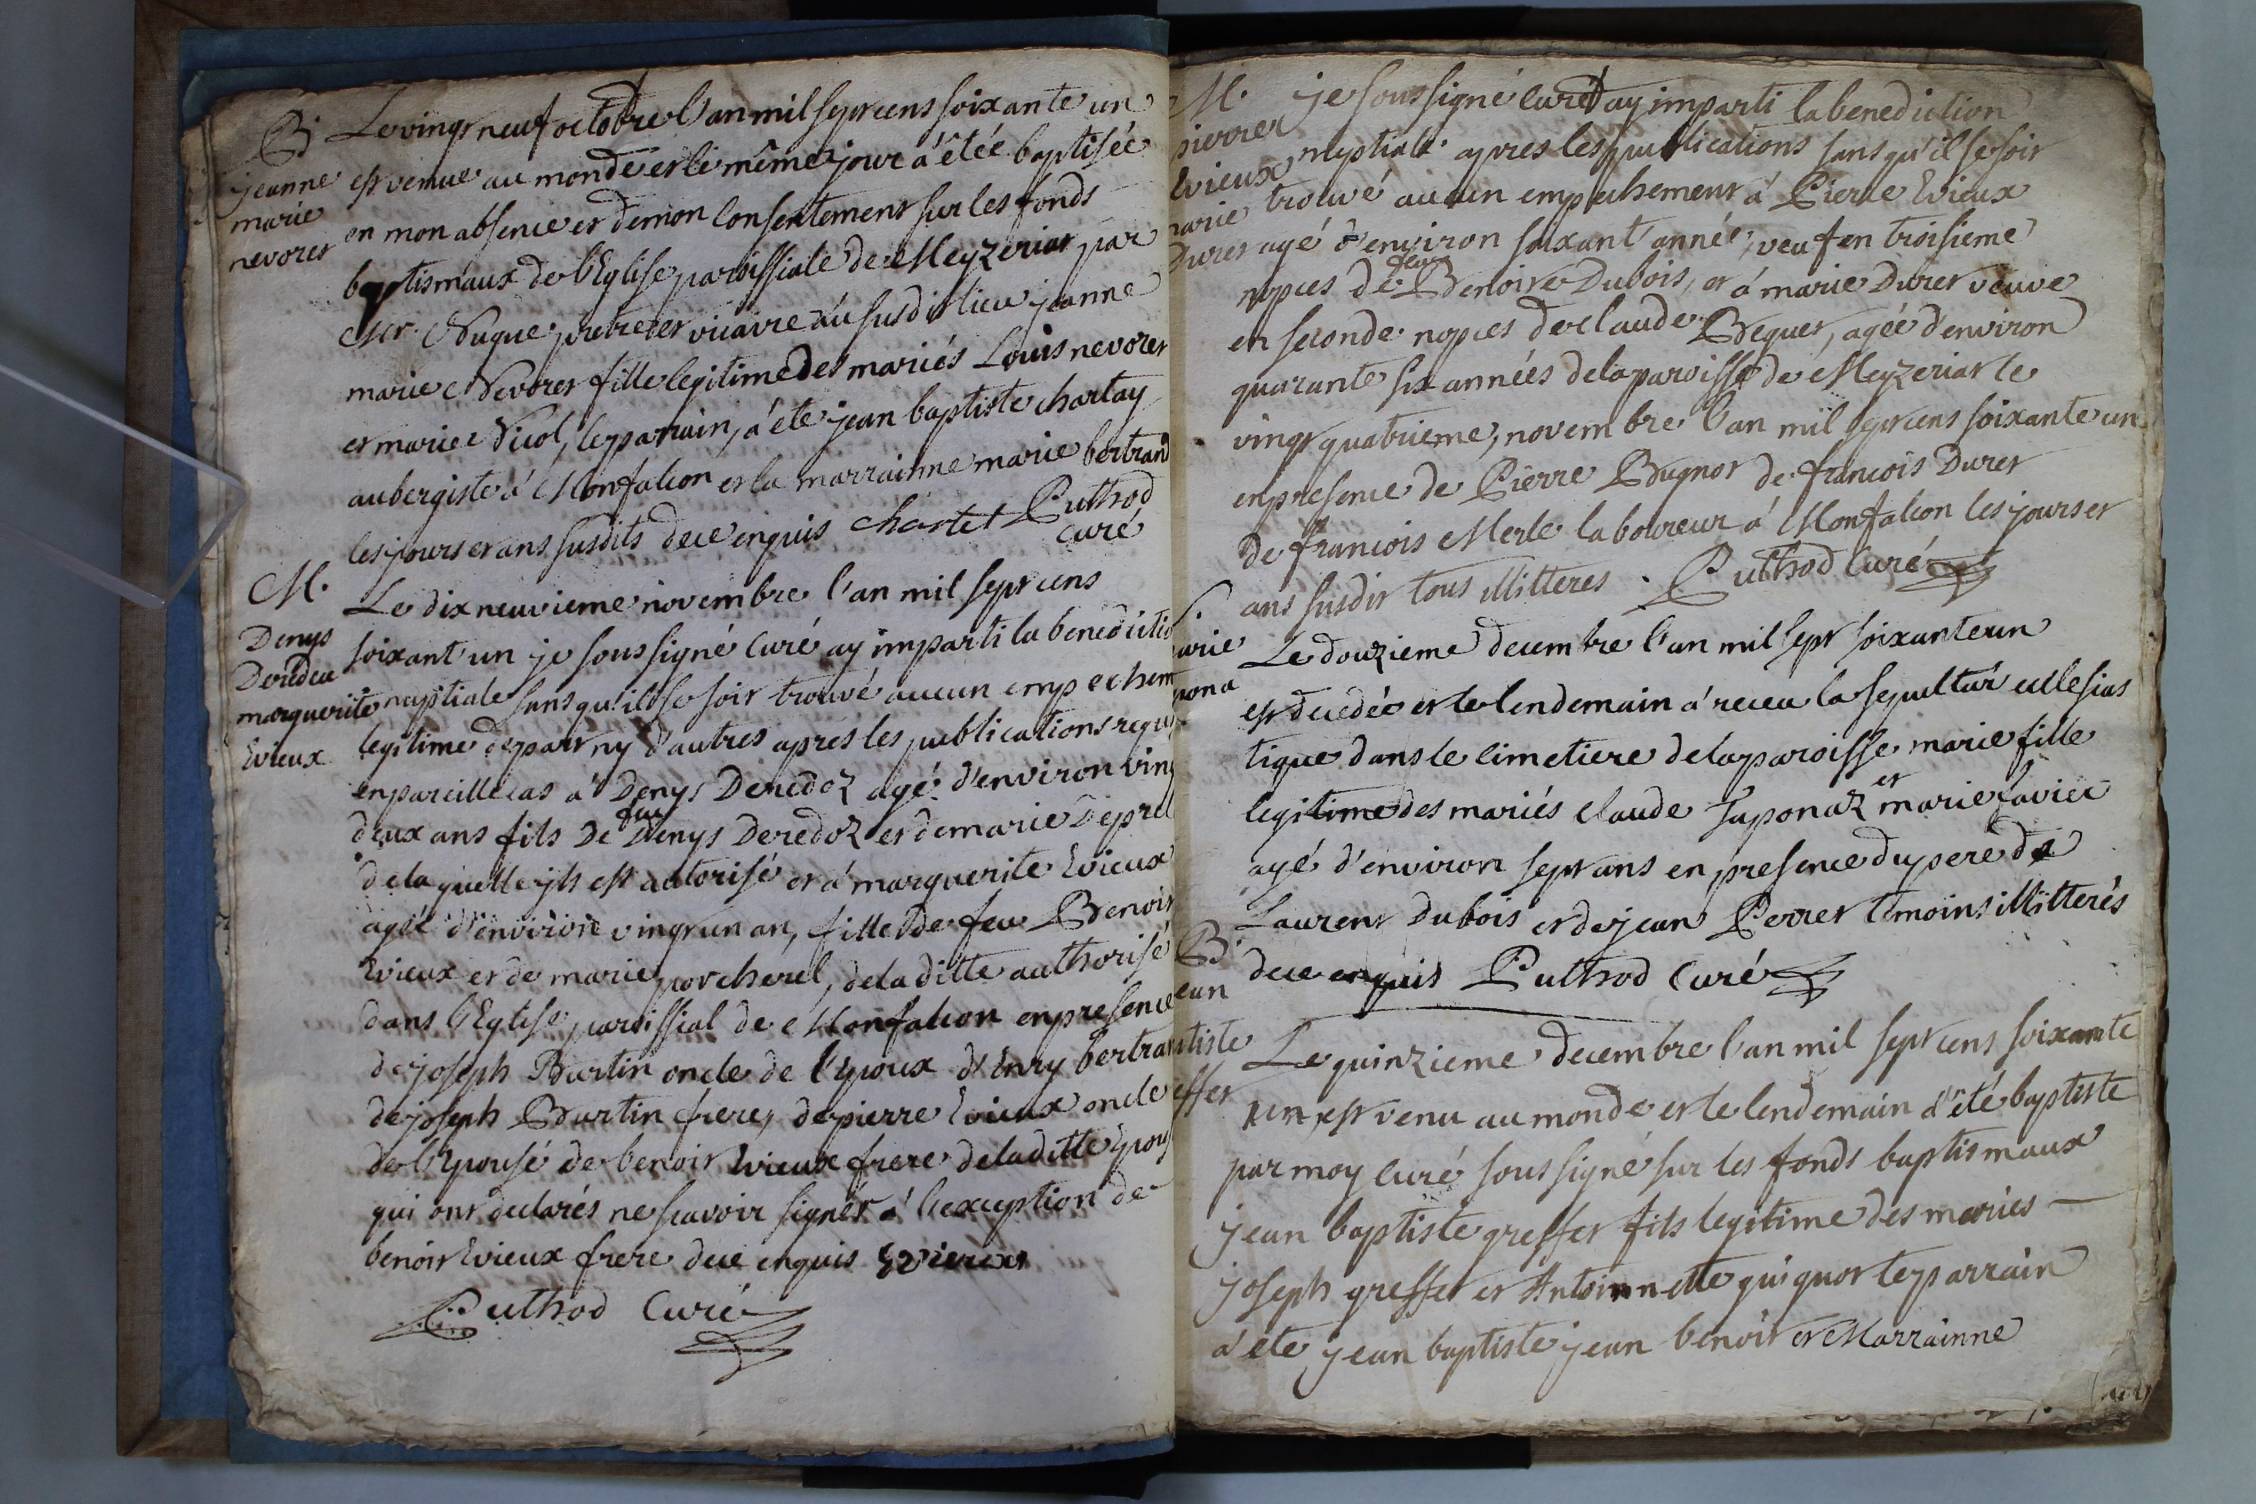 B.
jeanne
marie
nevoret
Le vingt neuf octobre l'an mil sept cens soixante un
est venue au monde et le même jour a étée baptisée
en mon absence et de mon consentement sur les fonds
baptismaux de l'Eglise paroissiale de Meyzeriat par
Mer. Nugue pretre et vicaire au susdit lieu jeanne
marie Nevoret fille legitime des mariés Louis nevoret
et marie Nicol, le parrain, a été jean baptiste chartay
aubergiste a Monfalcon et la marrainne marie bertrand
les jours et ans susdits de ce enquis chartet Puthod
curé
M.
Denys
Deredeu
marguerite
Evieux
Le dix neuvieme novembre l'an mil sept cens
soixant un je soussigné Curé ay imparti la benedictio
nuptiale sans qu'il se soit trouvé aucun empechem
legitime de part ny d'autres apres les publications requ
en pareille cas a Denys Deredoz agé d'environ ving
deux ans fils De feu Denys Deredoz et de marie Deprel
de laquelle ils est autorisé et a marguerite Evieux
agée d'environ vingt un an, fille de feu Benoit
Evieux et de marie porcherel, de la ditte authorisé
dans l'Eglise paroissial de Monfalcon en presence
de joseph Burtin oncle de l'epoux d'Enry bertran
de joseph Burtin frere, de pierre Evieux oncle
de l'epouse de benoit Evieux frere de la ditte epous
qui ont declarés ne scavoir signer a l'exception de
benoit Evieux frere de ce enquis Evieux
Puthod Curé
M.
pierrer
Evieux
marie
Duret
je soussigné curé ay imparti la benediction
nuptiale apres les publications sans qu'il se soit
trouvé aucun empechement a Pierre Evieux
agé d'environ soixant année, veuf en troisieme
nopces de feue Benoite Dubois, et a marie Duret veuve
en seconde nopces de claude Beguet, agée d'environ
quarante six années de la paroisse de Meyzeriat le
vingt quatrieme, novembre l'an mil sept cens soixante un
en presence de Pierre Bugnot de francois Duret
de francois Merle laboureur a Monfalcon les jours et
ans susdit tous illitteres. Puthod Curé
S.
arie
pona
Le douzieme decembre l'an mil sept soixante un
est decedée et le lendemain a receu la sepultur ecclesias
tique dans le cimetiere de la paroisse marie fille
legitime des mariés Claude Taponaz et marie favier
agé d'environ sept ans en presence du pere de
Laurent Dubois et de jean Perret temoins illitterés
de ce enquis Puthod Curé
B.
ean
tiste
effer
Le quinzieme decembre l'an mil sept cens soixante
un est venu au monde et le lendemain a été baptiste
par moy curé soussigné sur les fonds baptismaux
jean baptiste greffet fils legitime des mariés
joseph greffet et Antoinnette guiguot le parrain
a été jean baptiste jean benoit et Marrainne